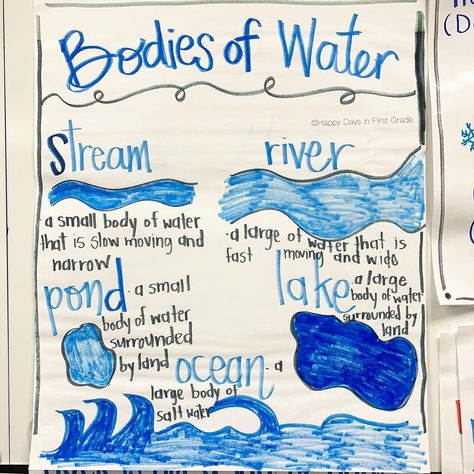 Bodies of Water
©Happy Days in First Grade
stream
a small body of water
that is slow moving and
narrow
river
·a large of water that is
fast moving and wide
pond - a small
body of water
surrounded
by land
lake - a large
body of water
surrounded by
land
ocean - a
large body of
salt water